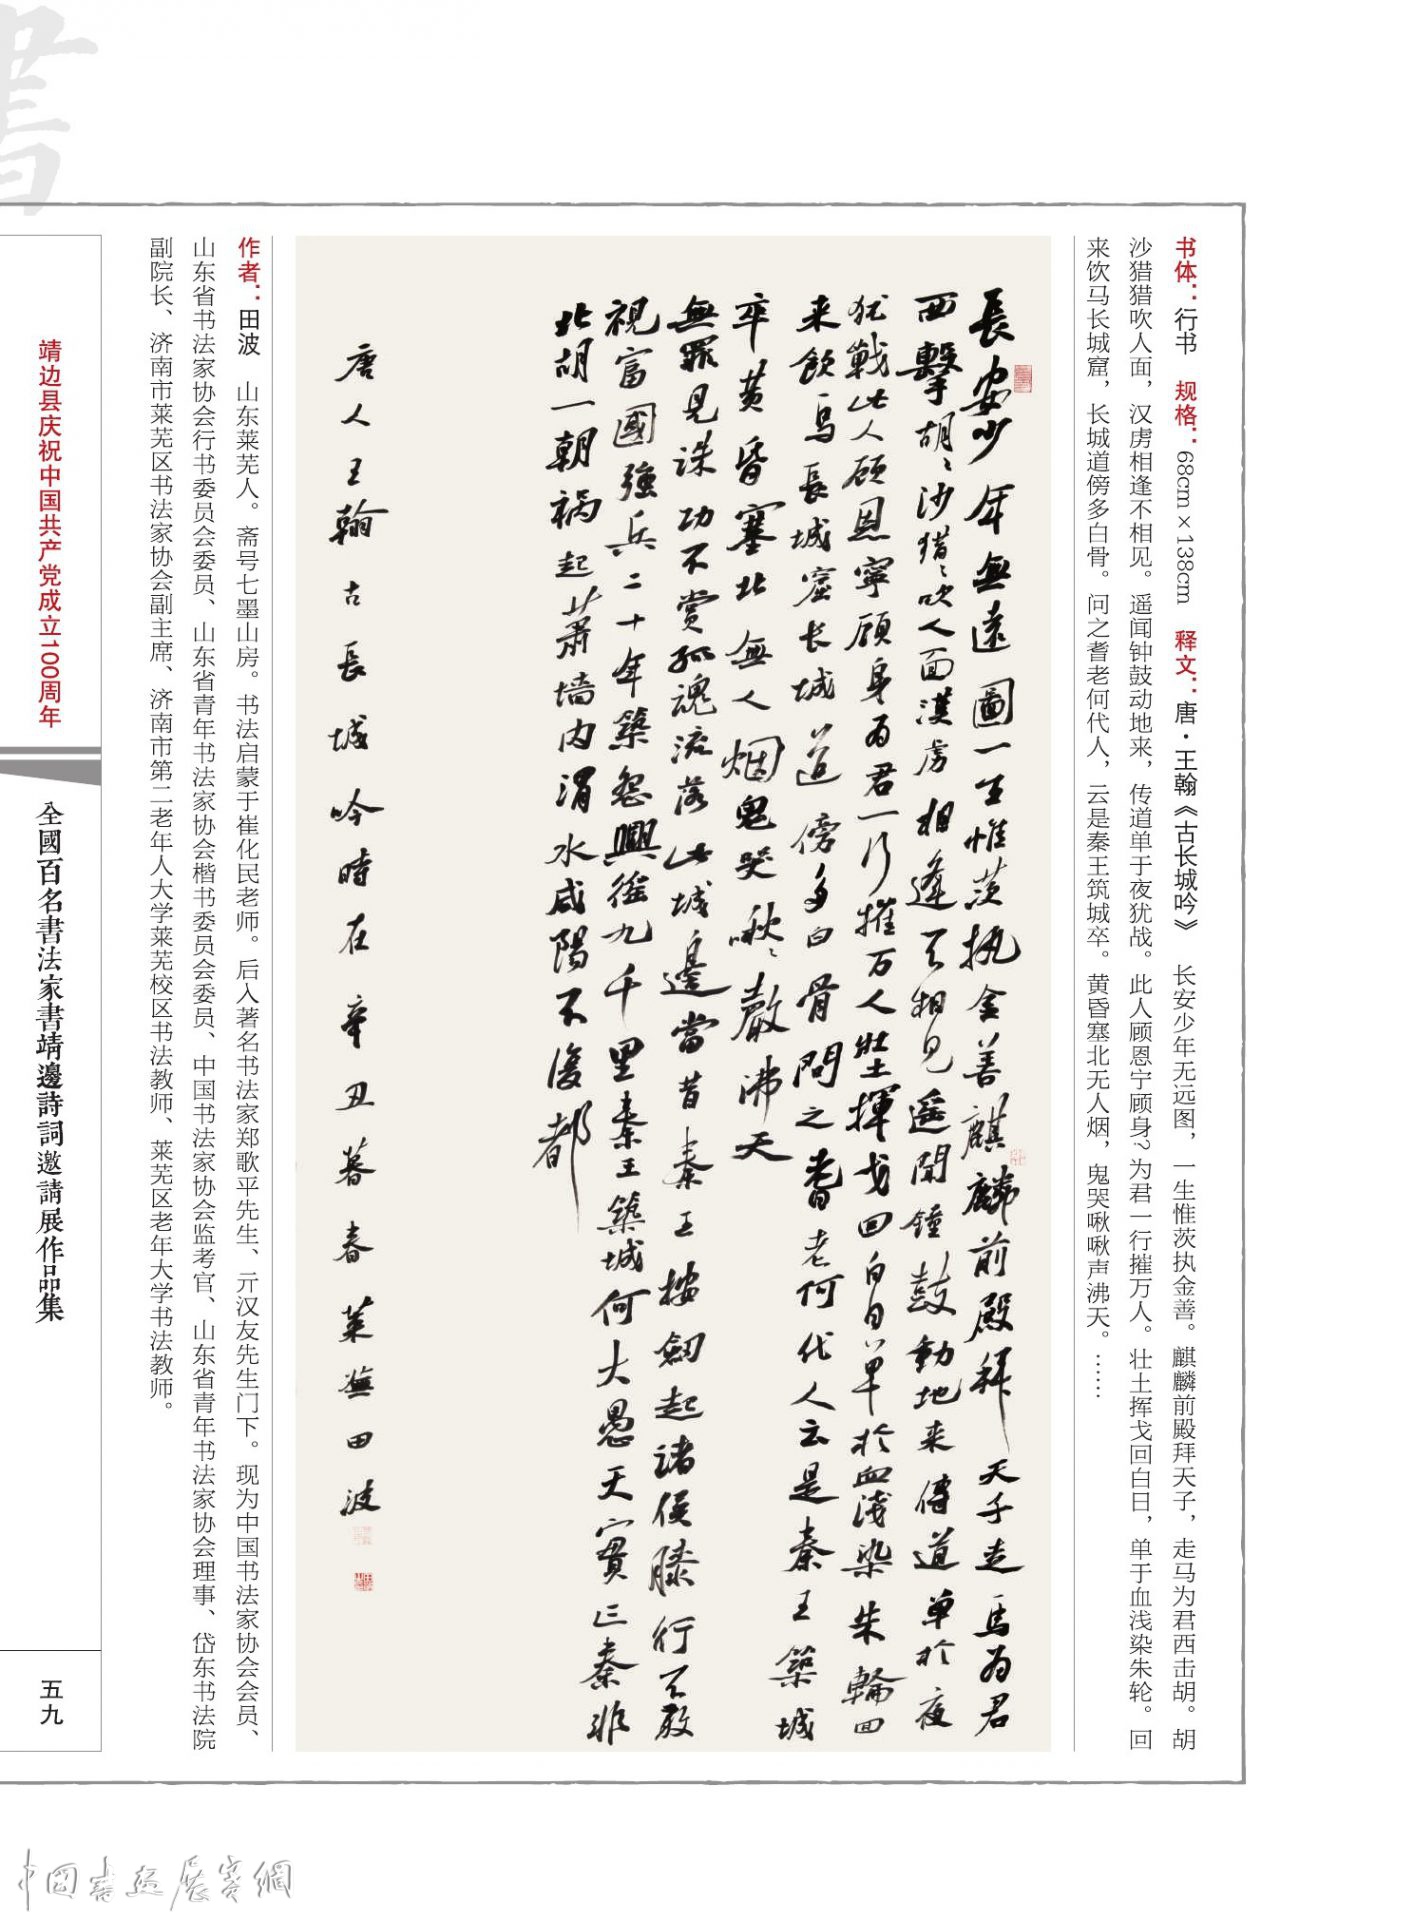 书体：行书　规格：68cm×138cm　释文：唐·王翰《古长城吟》　长安少年无远图，一生惟茨执金善。麒麟前殿拜天子，走马为君西击胡。胡
沙猎猎吹人面，汉虏相逢不相见。遥闻钟鼓动地来，传道单于夜犹战。此人顾恩宁顾身？为君一行摧万人。壮士挥戈回白日，单于血浅染朱轮。回
来饮马长城窟，长城道傍多白骨。问之耆老何代人，云是秦王筑城卒。黄昏塞北无人烟，鬼哭啾啾声沸天。……
長安少年無遠圖一生惟茨执金善麒麟前殿拜天子走馬为君
西擊胡〻沙猎〻吹人面漢虏相逢不相見遥闻鍾鼓動地来傳道单於夜
犹戰此人顾恩寧顾身为君一行摧万人壮士揮戈回白日单於血浅染朱輪回
来飲馬長城窟长城道傍多白骨問之耆老何代人云是秦王築城
卒黄昏塞北無人烟鬼哭啾〻聲沸天
無罪見诛功不赏孤魂流落此城邊當昔秦王按劒起诸侯膝行不敢
視富國强兵二十年築怨興徭九千里秦王築城何大愚天實亡秦非
北胡一朝祸起萧墙内渭水咸陽不復都
唐人王翰古長城吟時在辛丑暮春莱蕪田波
作者：田波　山东莱芜人。斋号七墨山房。书法启蒙于崔化民老师。后入著名书法家郑歌平先生、亓汉友先生门下。现为中国书法家协会会员、
山东省书法家协会行书委员会委员、山东省青年书法家协会楷书委员会委员、中国书法家协会监考官、山东省青年书法家协会理事、岱东书法院
副院长、济南市莱芜区书法家协会副主席、济南市第二老年人大学莱芜校区书法教师、莱芜区老年大学书法教师。
靖边县庆祝中国共产党成立100周年
全國百名書法家書靖邊詩詞邀請展作品集
五九
書
中國書画展赛網